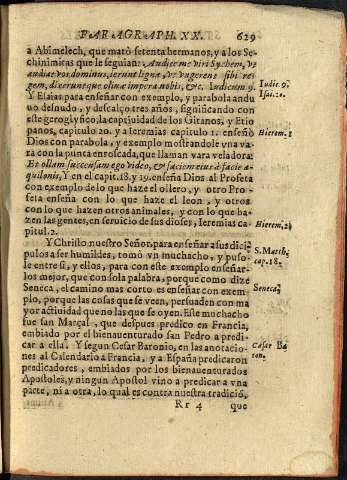 PARAGRAPH. XX. 629
a Abimelech, que mató setenta hermanos, y a los Se-
chinimicas que le seguian: Audite me viri Sychem, ve
audiat vos dominus, ierunt ligna, vt vngerent sibi re-
gem, dixeruntque oliuæ impera nobis, &c. Iudicum 9.
Iudic. 9.
Y Esaias para enseñar con exemplo, y parabola andu
Isai. 20.
uo desnudo, y descalço tres años, significando con
este geroglyfico, la captiuidad de los Gitanos, y Etio
panos, capitulo 20. y a Ieremias capitulo 1. enseñò
Hierem. 1
Dios con parabola, y exemplo mostrandole vna va
ra con la punta enroscada, que llaman vara veladora:
Et ollam succensam ego video, & faciem eius à facie a-
quilonis, Y en el capit. 18. y 19. enseña Dios al Profeta
con exemplo de lo que haze el ollero, y otro Pro-
feta enseña con lo que haze el leon, y otros
con lo que hazen otros animales, y con lo que ha-
zen las gentes, en seruicio de sus dioses, Ieremias ca
Hierem. 2
pitul. 2.
Y Christo nuestro Señor, para enseñar a sus dici-
pulos a ser humildes, tomò vn muchacho, y puso-
S. Matth.
le entre si, y ellos, para con este exemplo enseñar-
cap. 18.
los mejor, que con sola palabra, porque como dize
Seneca, el camino mas corto es enseñar con exem-
Seneca
plo, porque las cosas que se veen, persuaden con ma
yor actiuidad que no las que se oyen. Este muchacho
fue san Marçal, que despues predico en Francia,
embiado por el bienauenturado san Pedro a predi-
car a ella. Y segun Cesar Baronio, en las anotacio-
Cesar Ba
nes al Calendario a Francia, y a España predicaron
ron.
predicadores, embiados por los bienauenturados
Apostoles, y ningun Apostol vino a predicar a vna
parte, ni a otra, lo qual es contra nuestra tradició,
Rr 4 que